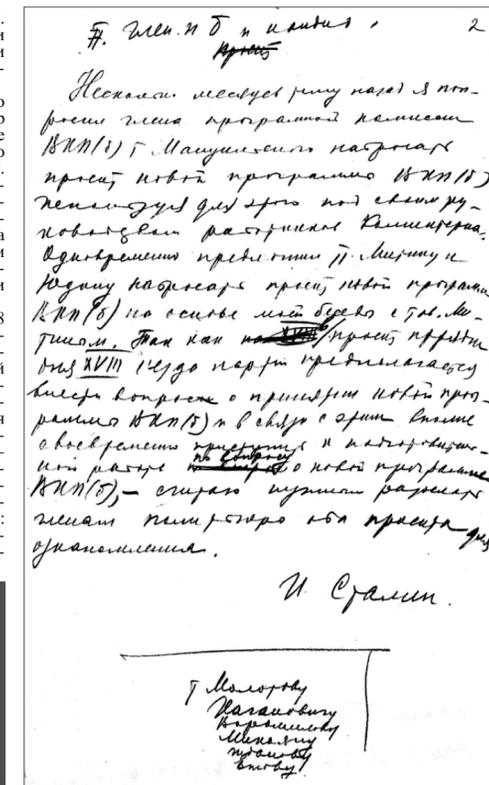 2
Несколько месяцев тому назад я поп-
росил члена программной комиссии
ВКП(б) т Мануильского набросать
проект новой программы ВКП(б)
используя для этого под своим ру-
ководством работников Коминтерна.
Одновременно предложил тт. Митину и
Юдину набросать проект новой программы
ВКП(б) на основе моей беседы с тов. Ми-
тиным. Так как проект порядка
дня XVIII съезда партии предполагается
внести вопрос о принятии новой прог-
раммы ВКП(б) и в связи с этим вполне
своевременно приступить к подготовитель-
ной работе по вопросу о новой программе
ВКП(б), – считаю нужным разослать
членам политбюро оба проекта для
ознакомления.
И Сталин.
т Молотову
Кагановичу
Ворошилову
Микояну
Жданову
Ежову